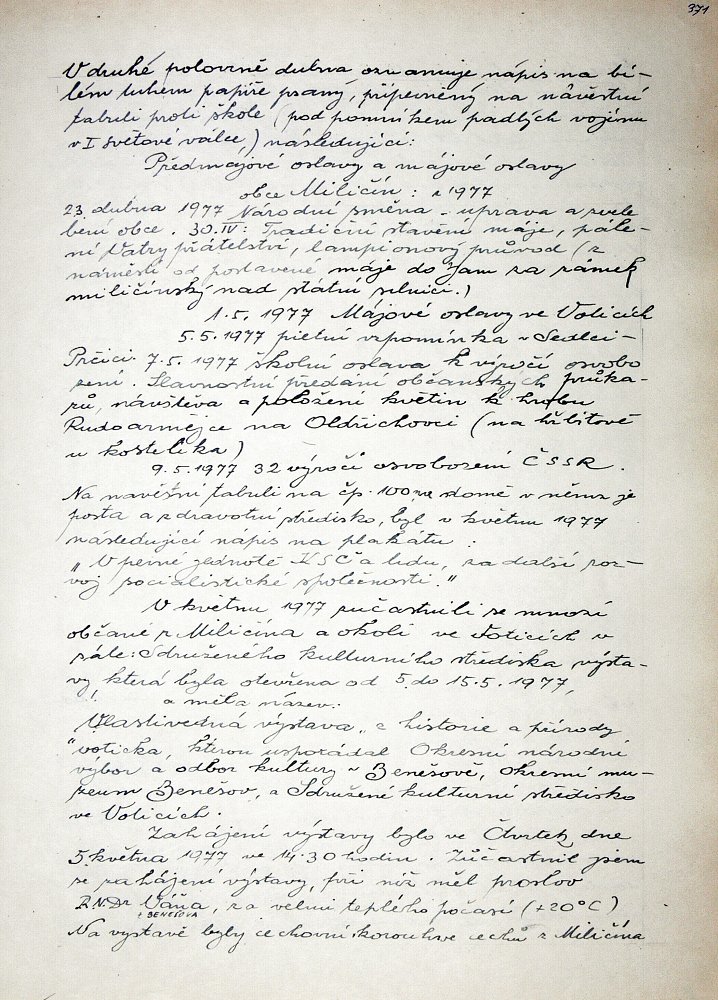 371
V druhé polovině dubna oznamuje nápis na bí-
lém tuhém papíře psaný, připevněný na návěstní
tabuli proti škole (pod pomníkem padlých vojínů
v I světové válce,) následující:
Předmájové oslavy a májové oslavy
obce Miličín: r 1977
23. dubna 1977 Národní směna - uprava a zvele
bení obce. 30.IV: Tradiční stavění máje, pále-
ní Vatry přátelství, lampionový průvod (z
náměstí od postavené máje do Jam za zámek
miličínský nad státní silnicí.)
1.5. 1977 Májové oslavy ve Voticích
5.5.1977 pietní vzpomínka v Sedlci-
Prčici. 7.5. 1977 školní oslava k výročí osvobo
zení. Slavnostní předání občanských průka-
zů, návštěva a položení květin k hrobu
Rudoarmějce na Oldřichovci (na hřbitově
u kostelíka)
9.5.1977 32 výročí osvobození ČSSR.
Na navěštní tabuli na čp. 100 na domě v němž je
pošta a zdravotní středisko, byl v květnu 1977
následující nápis na plakátu:
„V pevné jednotě KSČ a lidu, za další roz-
voj socialistické společnosti."
V květnu 1977 zučastnili se mnozí
občané z Miličína a okolí ve Voticích v
sále: Sdruženého kulturního střediska výsta-
vy, která byla otevřena od 5. do 15.5.1977,
a měla název:
Vlastivědná výstava „z historie a přírody
voticka, kterou uspořádal Okresní národní
výbor a odbor kultury v Benešově, Okresní mu-
zeum Benešov, a Sdružené kulturní středisko
ve Voticích.
Zahájení výstavy bylo ve Čtvrtek dne
5. května 1977 ve 14.30 hodin. Zůčastnil jsem
se zahájení výstavy, při níž měl proslov
R.N.Dr Váňa, za velmi teplého počasí (+20°C)
z BENEŠOVA
Na výstavě byly cechovní korouhve cechů z Miličína